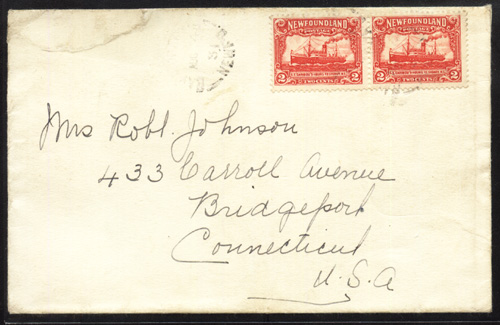 NEWFOUNDLAND NEWFOUNDLAND
POSTAGE POSTAGE
2 TWO CENTS 2 2 TWO CENTS 2
Mrs Robt. Johnson
433 Carroll Avenue
Bridgeport
Connecticut
U.S.A